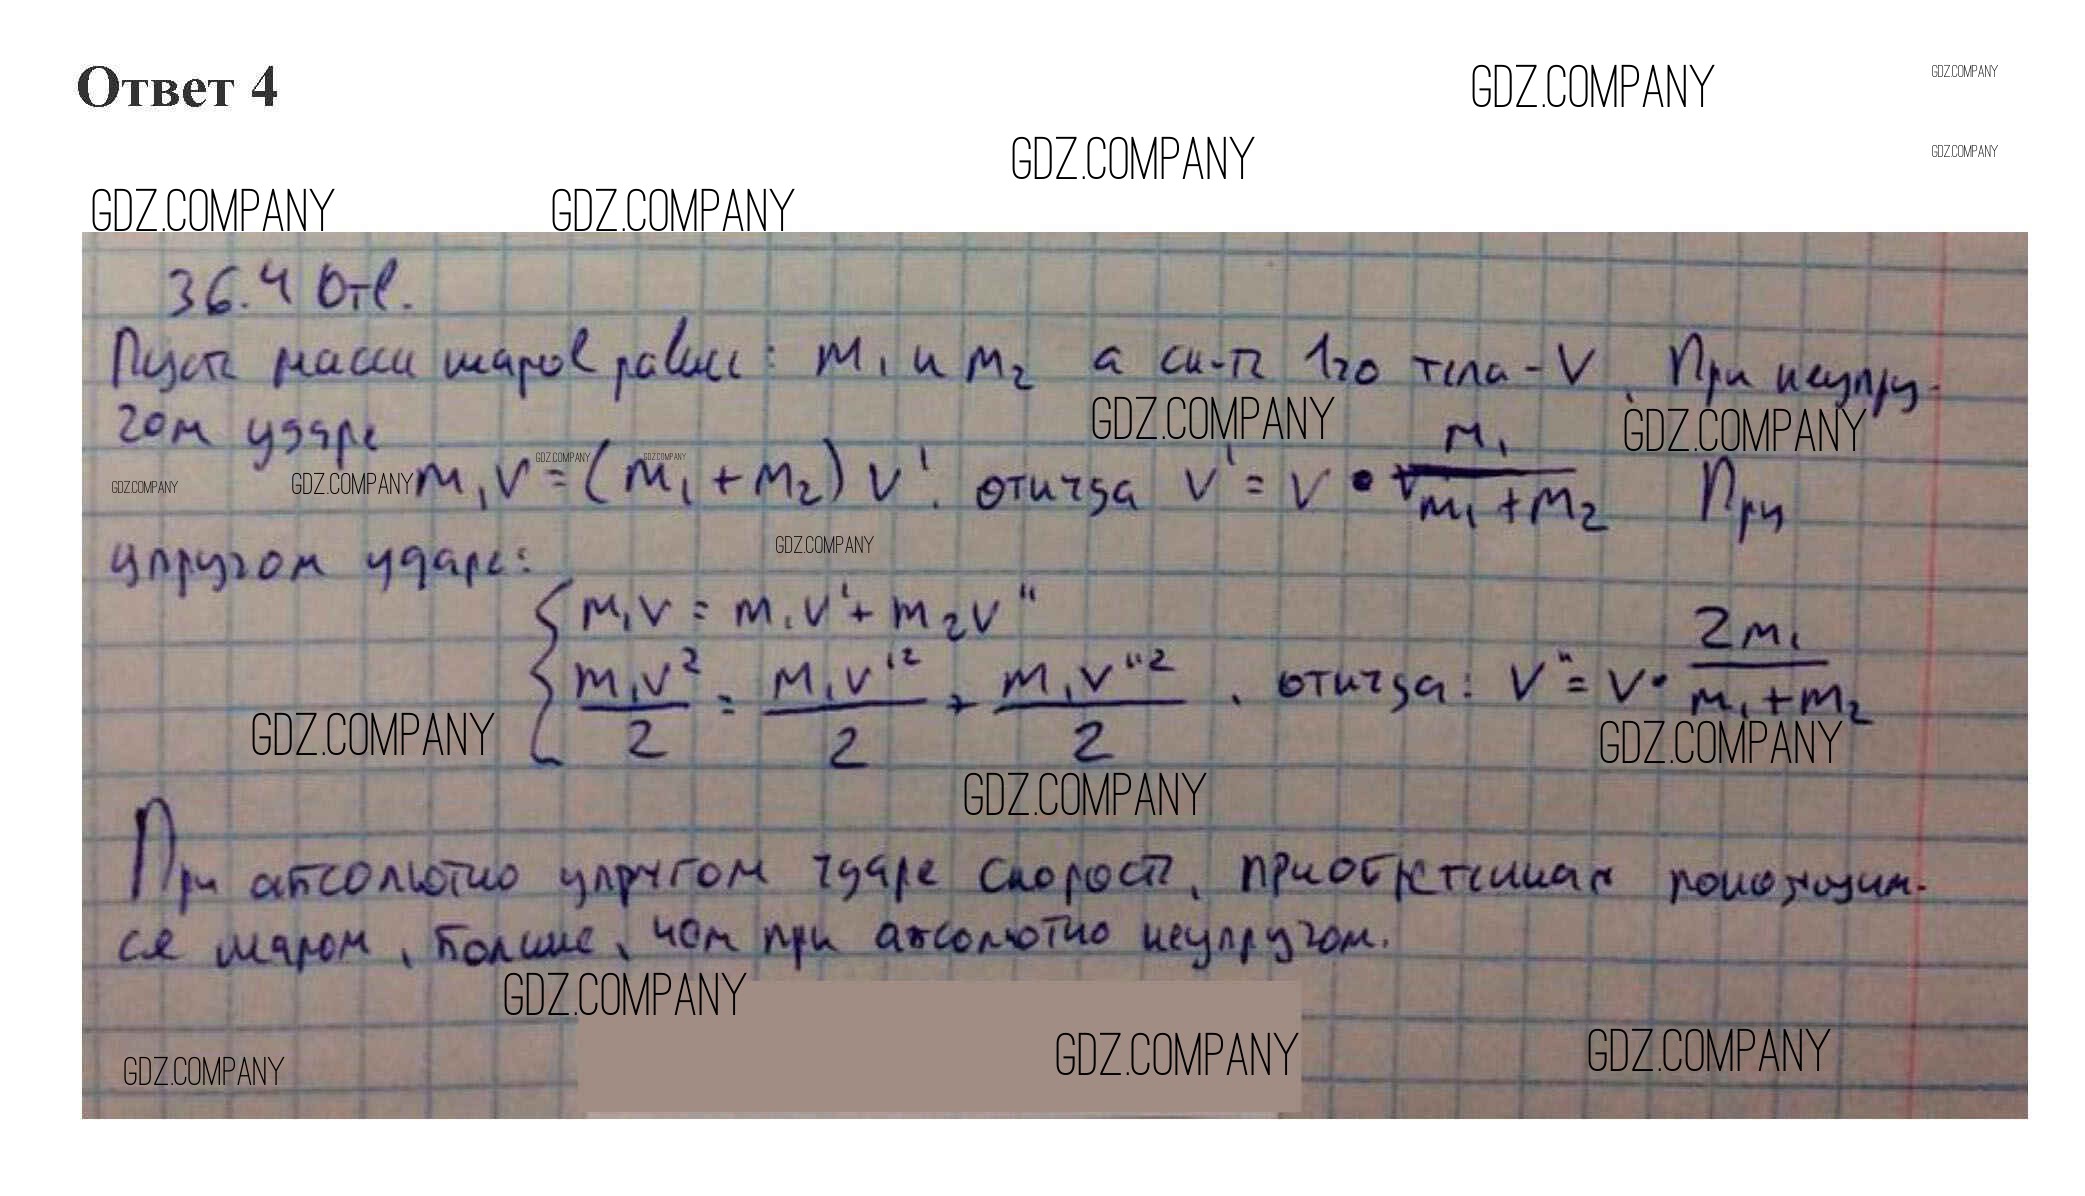 Ответ 4
GDZ.COMPANY
GDZ.COMPANY
GDZ.COMPANY
GDZ.COMPANY
GDZ.COMPANY
GDZ.COMPANY
36.4 Отв.
Пусть массы шаров равны: m₁ и m₂ а ск-ть 1го тела - V. При неупру-
GDZ.COMPANY
GDZ.COMPANY
гом ударе
GDZ.COMPANY
GDZ.COMPANY
GDZ.COMPANY
GDZ.COMPANY
m₁V = (m₁ + m₂) V'. откуда V' = V • m₁ / (m₁ + m₂) При
GDZ.COMPANY
упругом ударе:
{ m₁V = m₁V' + m₂V"
m₁V²/2 = m₁V'²/2 + m₁V"²/2 . откуда: V" = V • 2m₁ / (m₁ + m₂)
GDZ.COMPANY
GDZ.COMPANY
GDZ.COMPANY
При абсолютно упругом ударе скорость, приобретенная покоящим-
ся шаром, больше, чем при абсолютно неупругом.
GDZ.COMPANY
GDZ.COMPANY
GDZ.COMPANY
GDZ.COMPANY